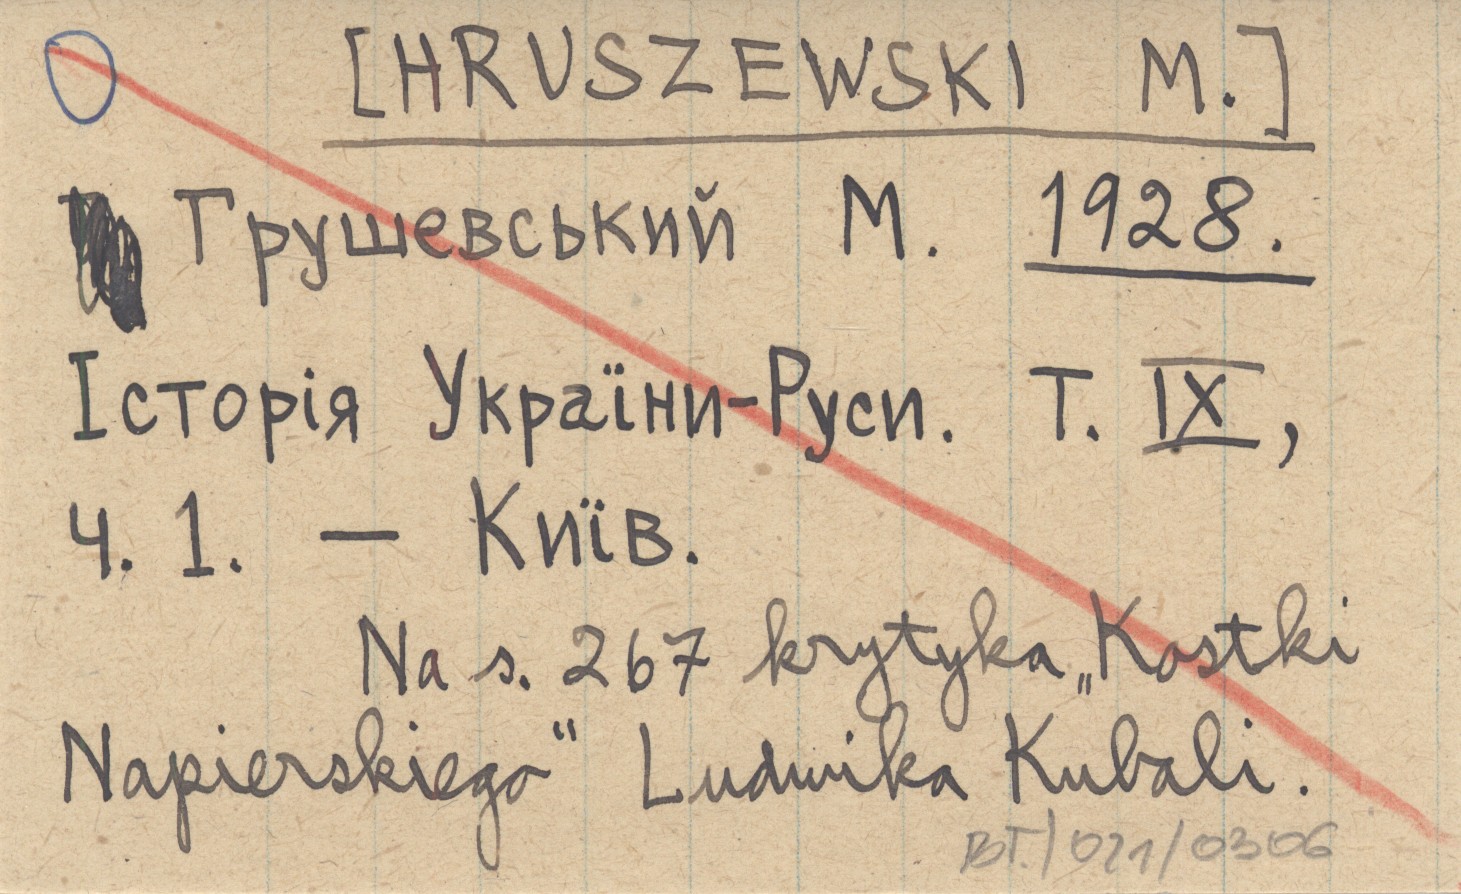 [HRUSZEWSKI M.]
Грушевський М. 1928.
Історія України-Руси. Т. IX,
ч. 1. — Київ.
Na s. 267 krytyka „Kostki
Napierskiego“ Ludwika Kubali.
BT./021/0306